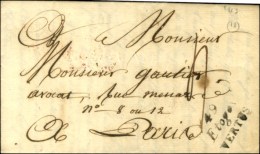 A Monsieur
Monsieur gautier
avocat, rue menar
n° 8 ou 12
A Paris
49
VERTUS